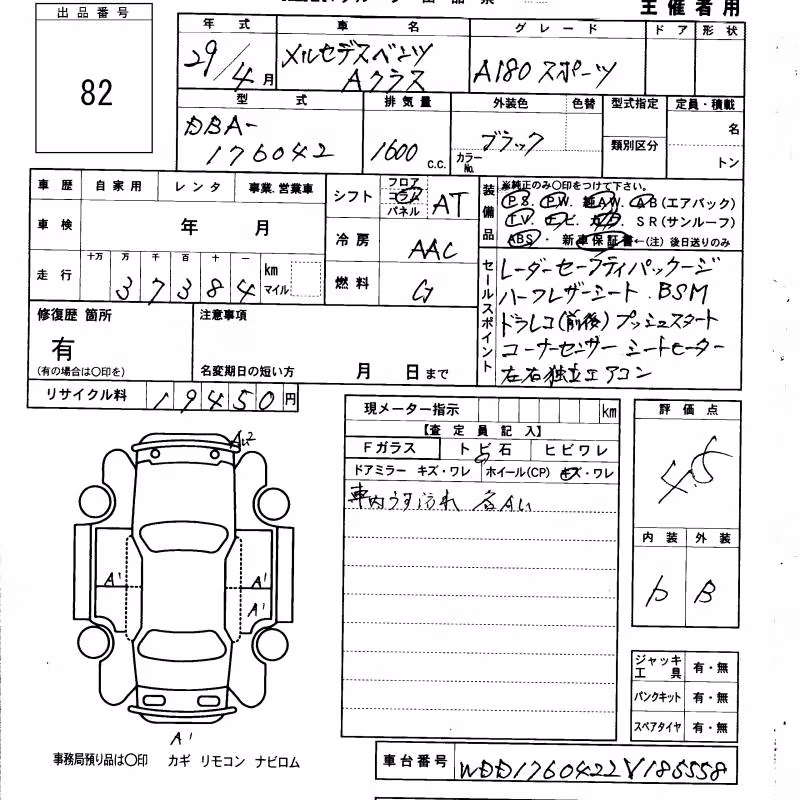 主催者用
出品番号
82
年式 車名 グレード ドア 形状
29/4月 メルセデスベンツ Aクラス A180 スポーツ
型式 排気量 外装色 色替 型式指定 定員・積載
DBA-
176042 1600 c.c. ブラック カラーNo. 類別区分 名
トン
車歴 自家用 レンタ 事業.営業車
車検 年 月
走行 十万 万 千 百 十 一
37384 km マイル
シフト フロア コラム パネル AT
冷房 AAC
燃料 G
装備品 ※純正のみ○印をつけて下さい。
P.S. P.W. 純A.W. A.B(エアバック)
T.V. ナビ. カワ. S R(サンルーフ)
ABS. 新車保証書←(注) 後日送りのみ
セールスポイント
レーダーセーフティパッケージ
ハーフレザーシート.BSM
ドラレコ(前後)プッシュスタート
コーナーセンサー シートヒーター
左右独立エアコン
修復歴 箇所 注意事項
有
(有の場合は○印を) 名変期日の短い方 月 日まで
リサイクル料 19450 円
現メーター指示 km
【査定員記入】
Fガラス トビ石 ヒビワレ
ドアミラー キズ・ワレ ホイール(CP) キズ・ワレ
車内うす汚れ
評価点
4.5
内装 外装
B
A'
A'
A'
A'
ジャッキ 工具 有・無
パンクキット 有・無
スペアタイヤ 有・無
事務局預り品は○印 カギ リモコン ナビロム
車台番号 WDD1760422V185558